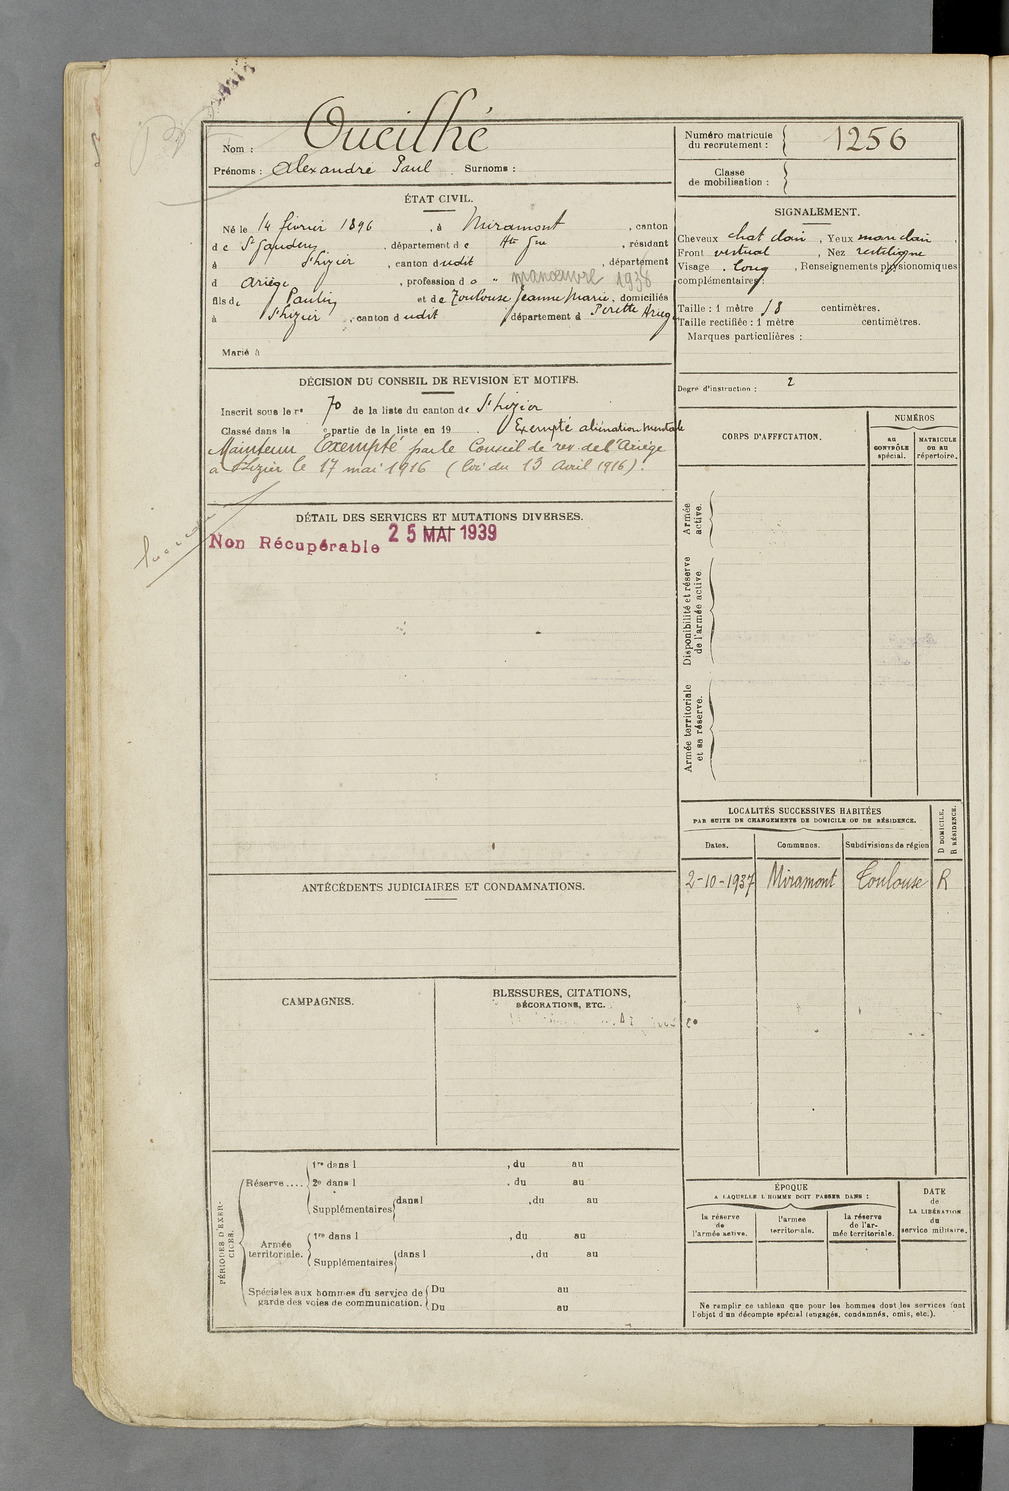 Nom : Oueilhé
Prénoms : Alexandre Paul Surnoms :
Numéro matricule du recrutement : 1256
Classe de mobilisation :
ÉTAT CIVIL.
Né le 14 février 1896, à Miramont, canton
de St Gaudens, département de Hte Gne, résidant
à St Lizier, canton dudit, département
d Ariège, profession d o " manœuvre 1938
fils de Paulin et de Toulouse Jeanne Marie, domiciliés
à St Lizier, canton dudit département d Ariège
Marié à
SIGNALEMENT.
Cheveux chat clair, Yeux mar clair,
Front vertical, Nez rectiligne
Visage long, Renseignements physionomiques
complémentaires :
Taille : 1 mètre 58 centimètres.
Taille rectifiée : 1 mètre centimètres.
Marques particulières :
Degré d'instruction : 2
DÉCISION DU CONSEIL DE REVISION ET MOTIFS.
Inscrit sous le n° 70 de la liste du canton de St Lizier
Classé dans la e partie de la liste en 19 . Exempté aliénation mentale
Maintenu Exempté par le Conseil de rev. de l'Ariège
à St Lizier le 17 mai 1916 (loi du 13 Avril 1916).
CORPS D'AFFECTATION.
NUMÉROS
AU CONTRÔLE spécial.
MATRICULE OU AU répertoire.
Armée active.
Disponibilité et réserve de l'armée active.
Armée territoriale et sa réserve.
DÉTAIL DES SERVICES ET MUTATIONS DIVERSES.
Non Récupérable 25 MAI 1939
LOCALITÉS SUCCESSIVES HABITÉES
PAR SUITE DE CHANGEMENTS DE DOMICILE OU DE RÉSIDENCE.
D DOMICILE.
R RÉSIDENCE.
Dates. Communes. Subdivisions de région
2-10-1937 Miramont Toulouse R
ANTÉCÉDENTS JUDICIAIRES ET CONDAMNATIONS.
CAMPAGNES.
BLESSURES, CITATIONS,
DÉCORATIONS, ETC.
PÉRIODES D'EXERCICES.
Réserve .... 1re dans l , du au
2e dans l , du au
Supplémentaires dans l , du au
Armée territoriale. 1re dans l , du au
Supplémentaires dans l , du au
Spéciales aux hommes du service de garde des voies de communication.
Du au
Du au
ÉPOQUE
A LAQUELLE L'HOMME DOIT PASSER DANS :
la réserve de l'armée active.
l'armée territoriale.
la réserve de l'armée territoriale.
DATE de LA LIBÉRATION du service militaire.
Ne remplir ce tableau que pour les hommes dont les services font
l'objet d'un décompte spécial (engagés, condamnés, omis, etc.).